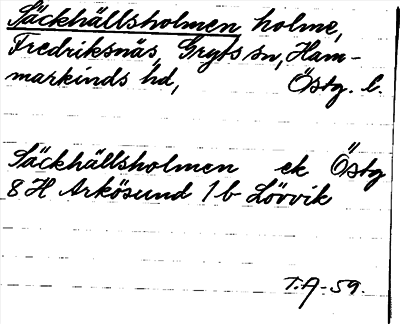 Säckhällsholmen holme,
Fredriksnäs, Gryts sn, Ham-
markinds hd, Östg. l.
Säckhällsholmen ek Östg
8 H Arkösund 1 b Lövvik
T.A-59.